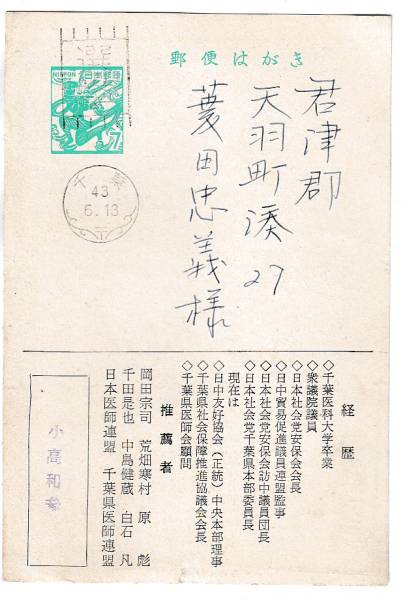 郵便はがき
NIPPON
日本郵便
7
千葉
43
6.13
君津郡
天羽町湊27
菱田忠義様
経歴
◇千葉医科大学卒業
◇衆議院議員
◇日本社会党安保会会長
◇日中貿易促進議員連盟監事
◇日本社会党安保会訪中議員団長
◇日本社会党千葉県本部委員長
現在は
◇日中友好協会(正統)中央本部理事
◇千葉県社会保障推進協議会会長
◇千葉県医師会顧問
推薦者
岡田宗司 荒畑寒村 原彪
千田是也 中島健蔵 白石凡
日本医師連盟 千葉県医師連盟
小高和